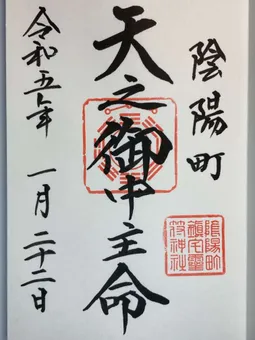 陰陽町
天之御中主命
令和五年
一月二十二日
陰陽町
鎮宅霊
符神社